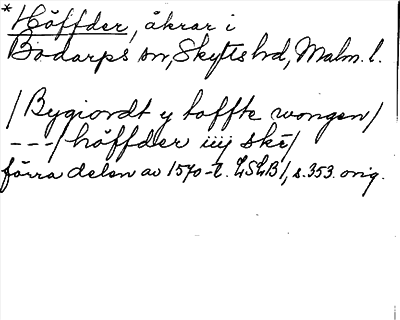 *Höffder, åkrar i
Bodarps sn, Skytts hd, Malm. l.
/Bygiordt y toffte wongen/
---/höffder iiij ske/
förra delen av 1570-t. LSLB 1, s. 353. orig.